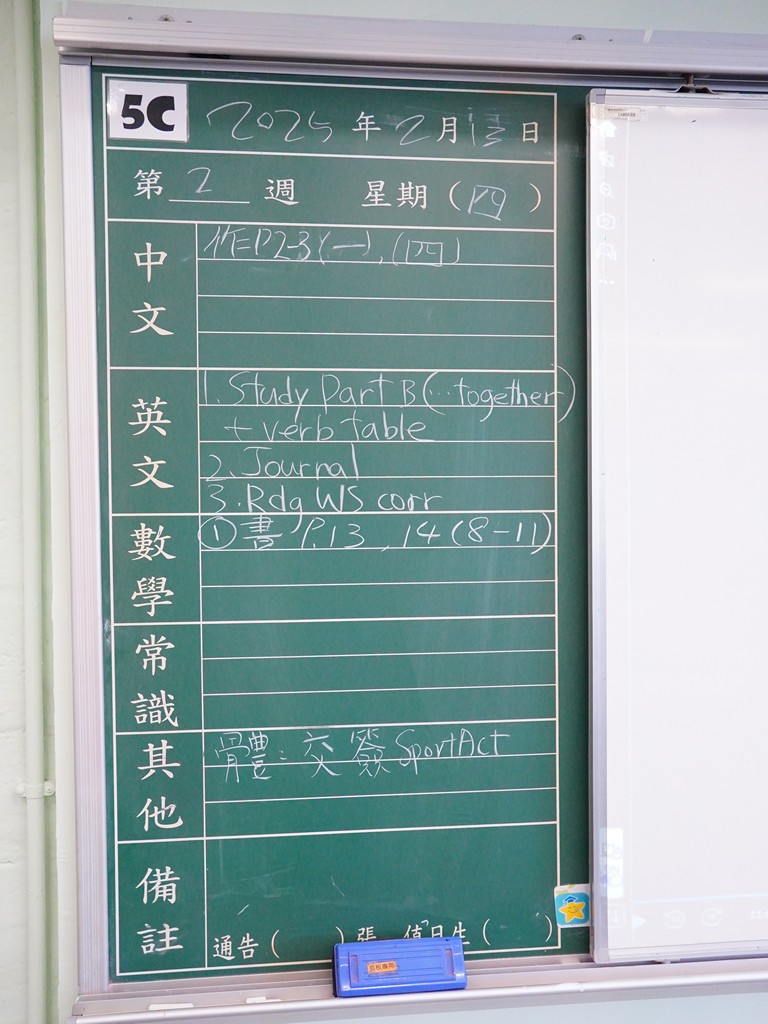 5C 2025年2月13日
第2週 星期（四）
中文 作=P2-3(一),(四)
英文 1. Study Part B (…together)
+ verb table
2. Journal
3. Rdg WS corr
數學 ① 書 P.13, 14 (8-11)
常識
其他 體: 交簽 SportAct
備註
通告（ ）張 值日生（ ）